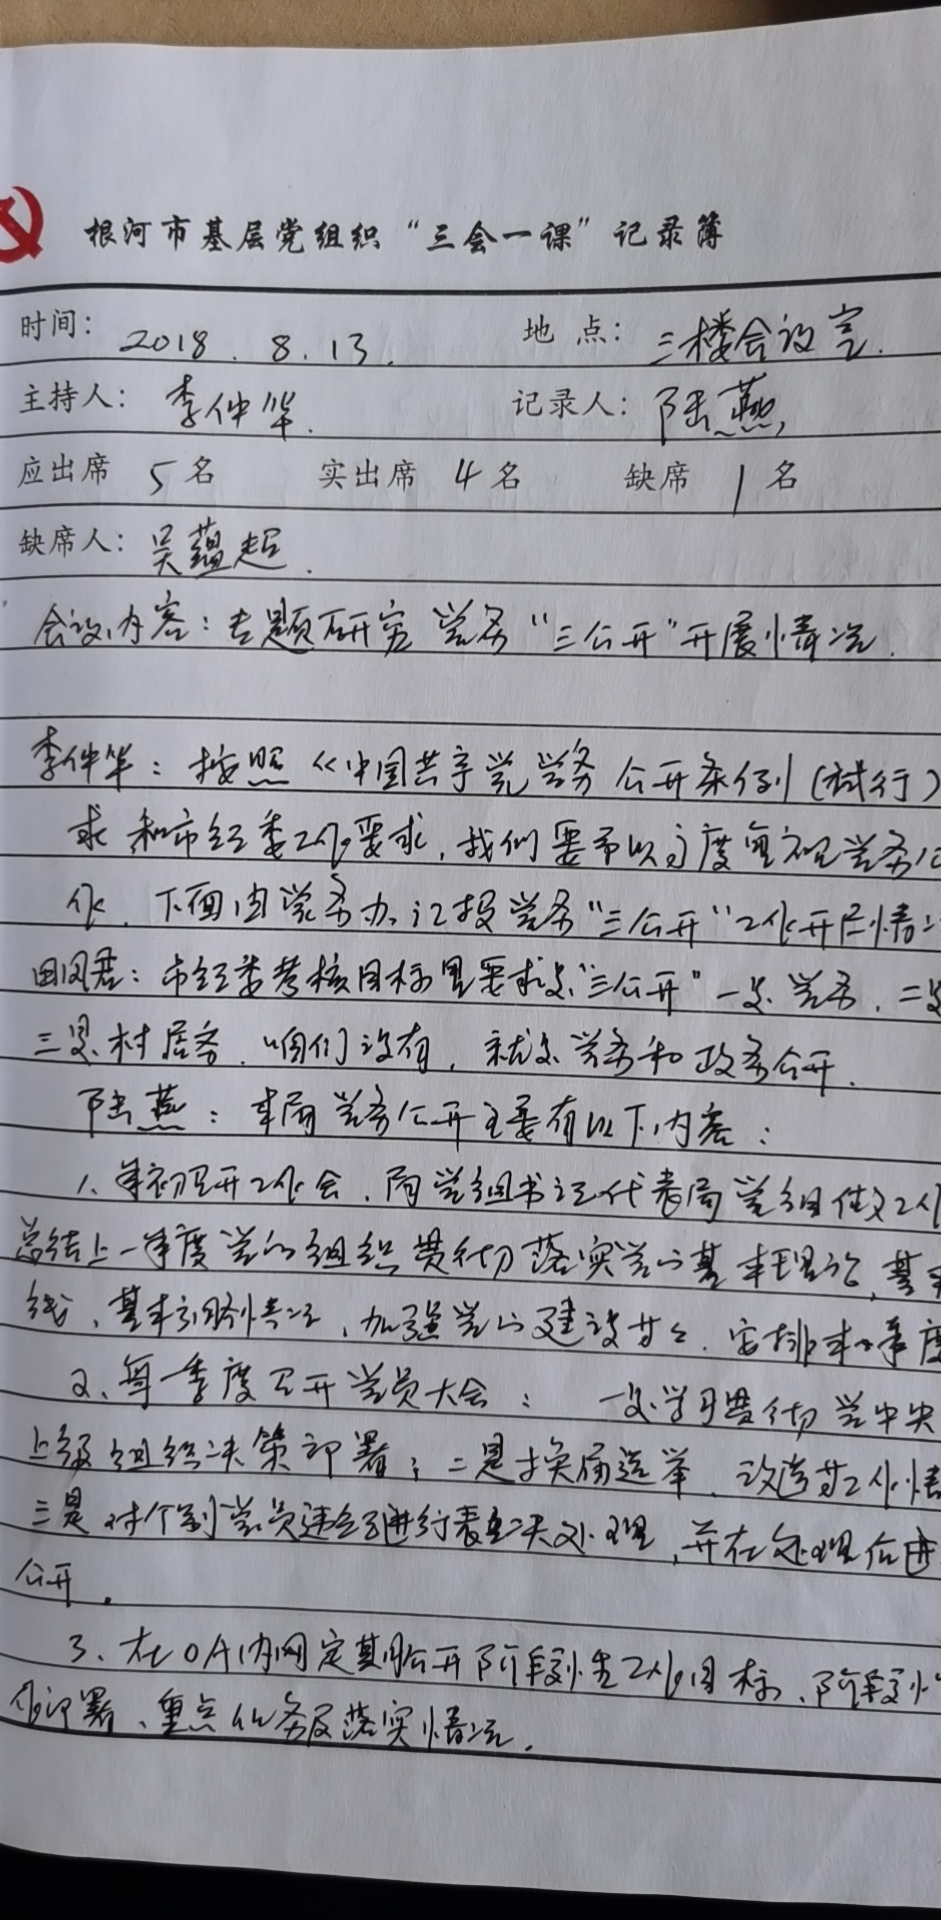 根河市基层党组织“三会一课”记录簿
时间: 2018.8.13. 地点: 三楼会议室.
主持人: 李仲华. 记录人: 陆燕,
应出席 5 名 实出席 4 名 缺席 1 名
缺席人: 吴蕴超.
会议内容: 专题研究党务“三公开”开展情况.
李仲华: 按照《中国共产党党务公开条例(试行)
求和市纪委工作要求, 我们要予以高度重视党务公
作. 下面由党务办汇报党务“三公开”工作开启情况
田凤君: 市纪委考核目标里要求是“三公开”一是党务. 二是
三是村居务. 咱们没有, 就是党务和政务公开.
陆燕: 本局党务公开主要有以下内容:
1. 年初召开工作会. 局党组书记代表局党组做工作
总结上一年度党的组织贯彻落实党的基本理论, 基本
线、基本方略情况, 加强党的建设等. 安排本年度
2、每季度召开党员大会: 一是学习贯彻党中央
上级组织决策部署; 二是换届选举. 改造等工作情
三是对个别党员违纪进行表决处理, 并在处理后进
公开.
3、在OA内网定期公开阶段性工作目标、阶段性
作部署、重点任务及落实情况.